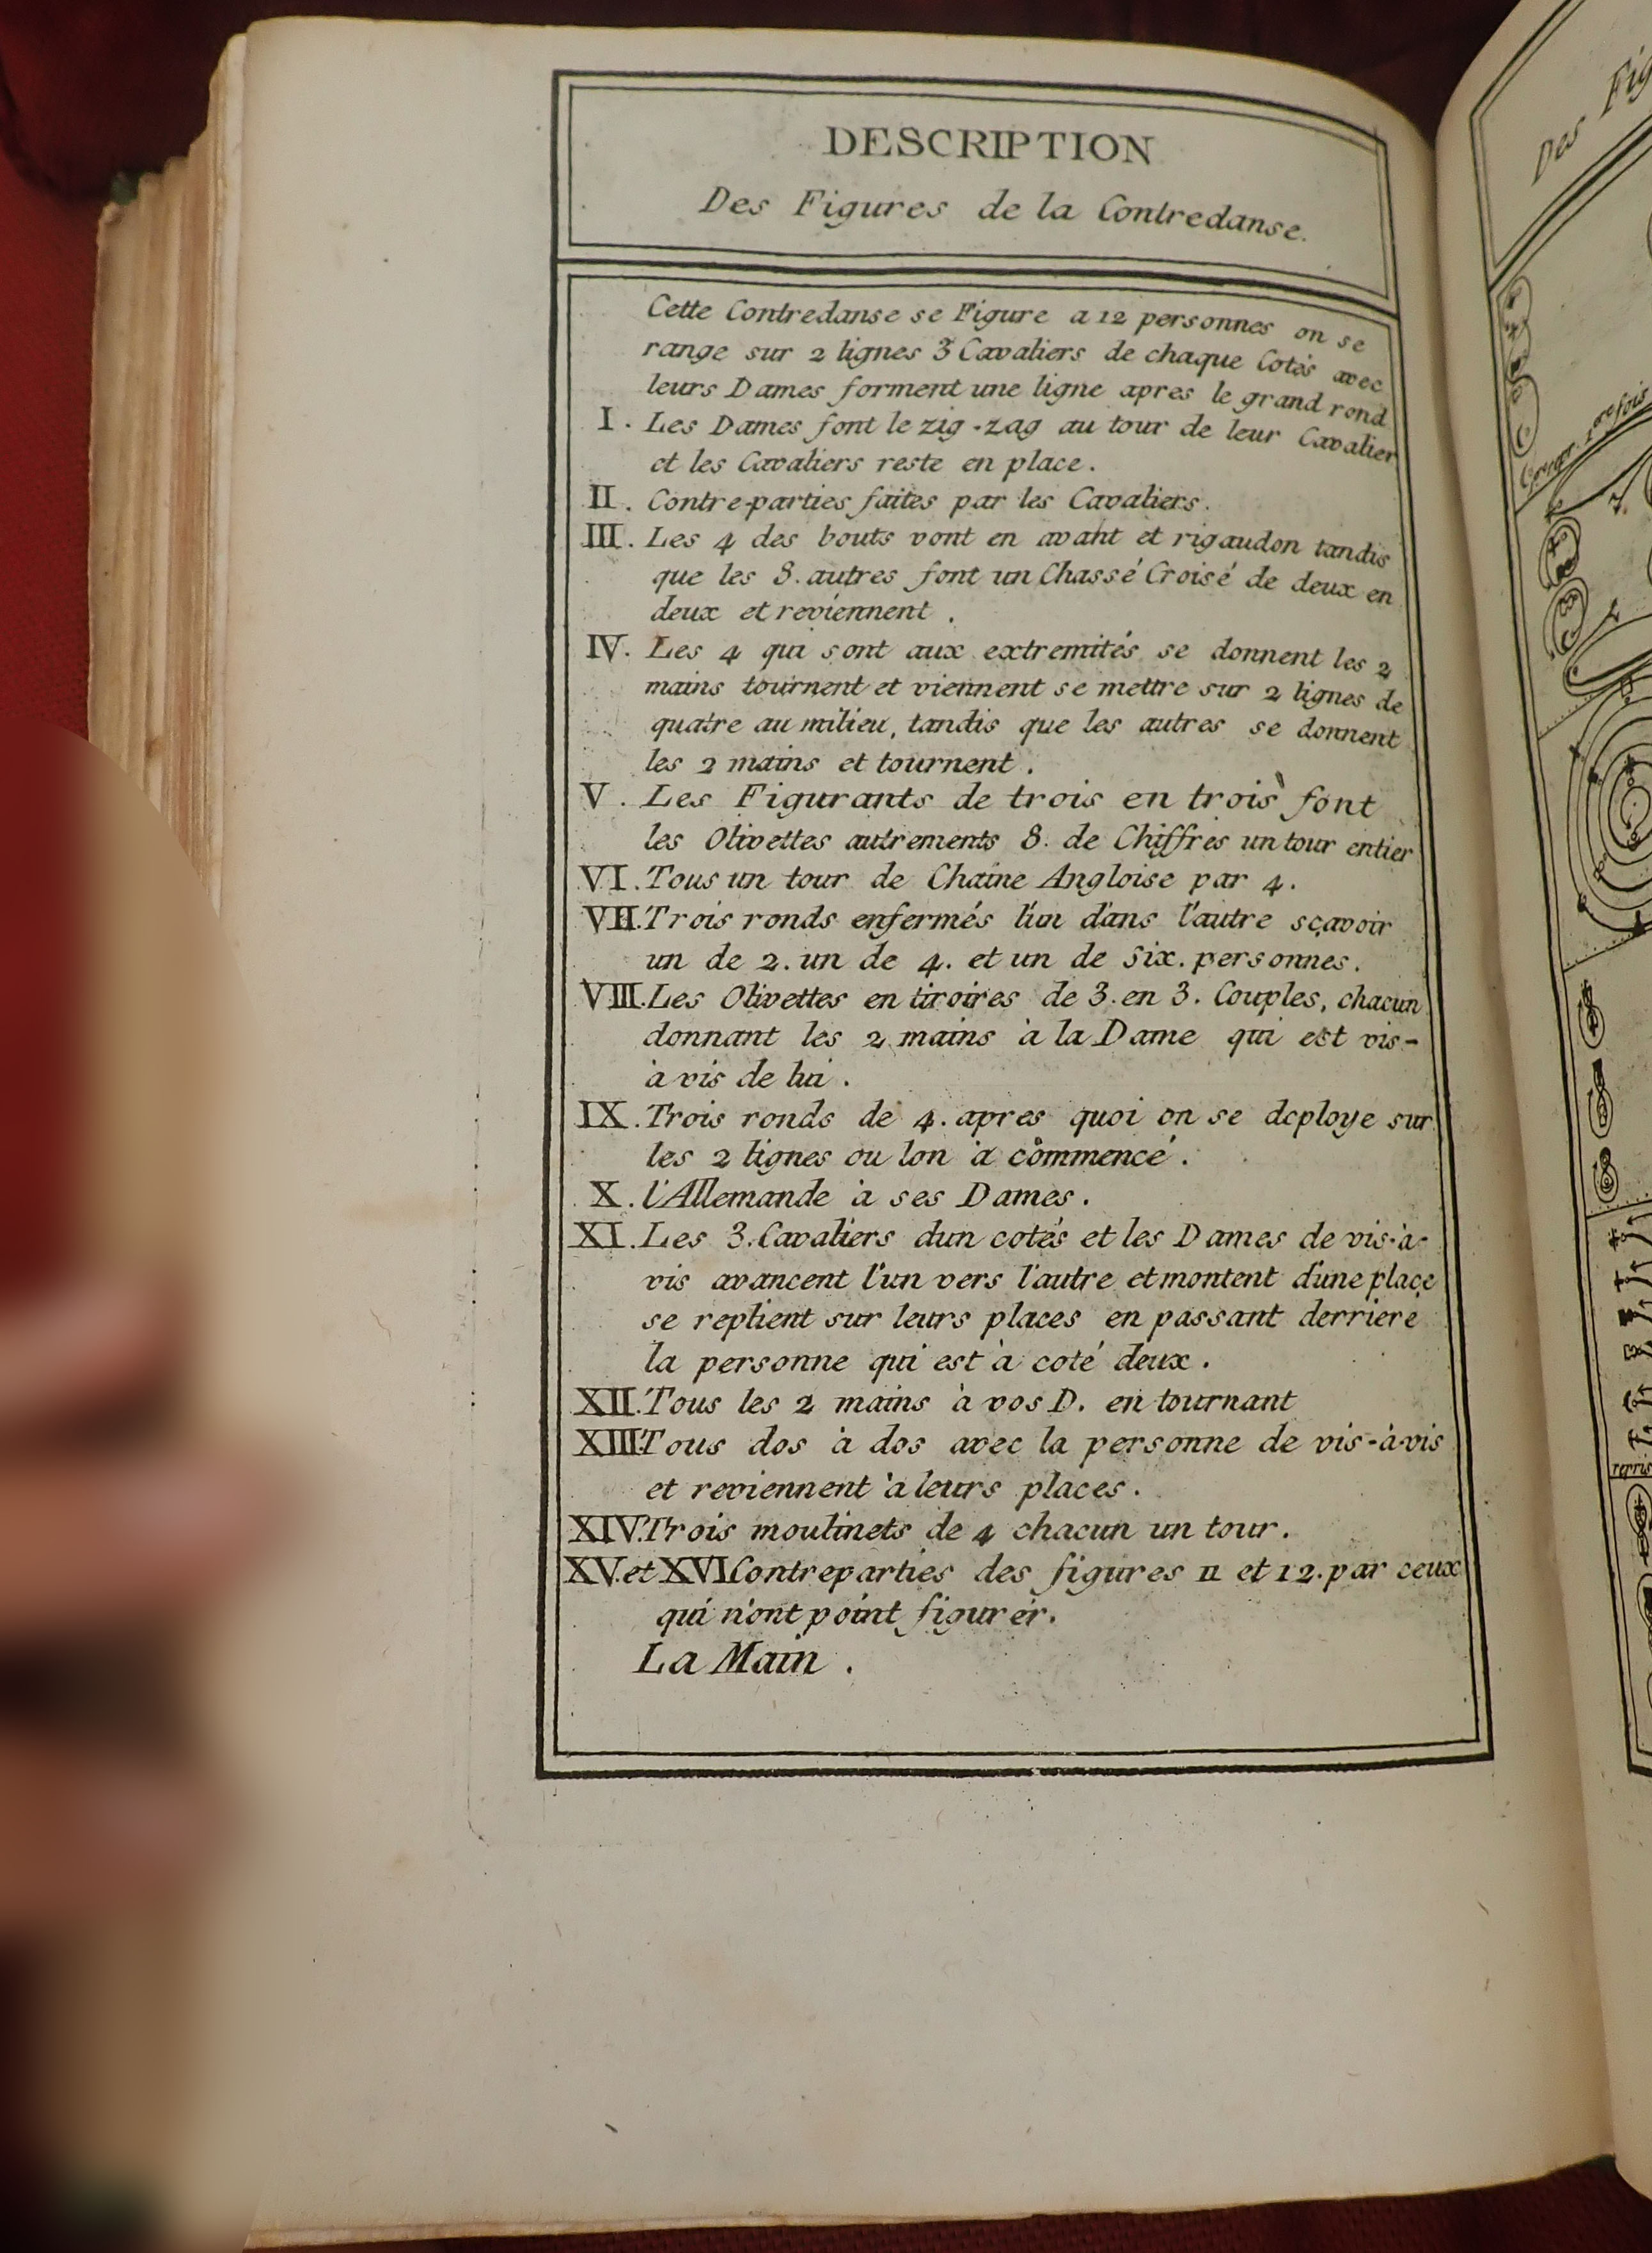 DESCRIPTION
Des Figures de la Contredanse.
Cette Contredanse se Figure a 12 personnes on se
range sur 2 lignes 3 Cavaliers de chaque Cotés avec
leurs Dames forment une ligne apres le grand rond
I. Les Dames font le zig-zag au tour de leur Cavalier
et les Cavaliers reste en place.
II. Contre-parties faites par les Cavaliers.
III. Les 4 des bouts vont en avant et rigaudon tandis
que les 8. autres font un Chassé Croisé de deux en
deux et reviennent.
IV. Les 4 qui sont aux extremités se donnent les 2
mains tournent et viennent se mettre sur 2 lignes de
quatre au milieu, tandis que les autres se donnent
les 2 mains et tournent.
V. Les Figurants de trois en trois font
les Olivettes autrements 8. de Chiffres un tour entier
VI. Tous un tour de Chaine Angloise par 4.
VII. Trois ronds enfermés l'un dans l'autre sçavoir
un de 2. un de 4. et un de Six. personnes.
VIII. Les Olivettes en tiroires de 3. en 3. Couples, chacun
donnant les 2 mains à la Dame qui est vis-
à vis de lui.
IX. Trois ronds de 4. apres quoi on se deploye sur
les 2 lignes ou lon à commencé.
X. l'Allemande à ses Dames.
XI. Les 3. Cavaliers dun cotés et les Dames de vis-à-
vis avancent l'un vers l'autre et montent d'une place
se replient sur leurs places en passant derriere
la personne qui est à coté deux.
XII. Tous les 2 mains à vos D. en tournant
XIII. Tous dos à dos avec la personne de vis-à-vis
et reviennent à leurs places.
XIV. Trois moulinets de 4 chacun un tour.
XV. et XVI. Contreparties des figures 11 et 12. par ceux
qui n'ont point figurér.
La Main.
Des Fig